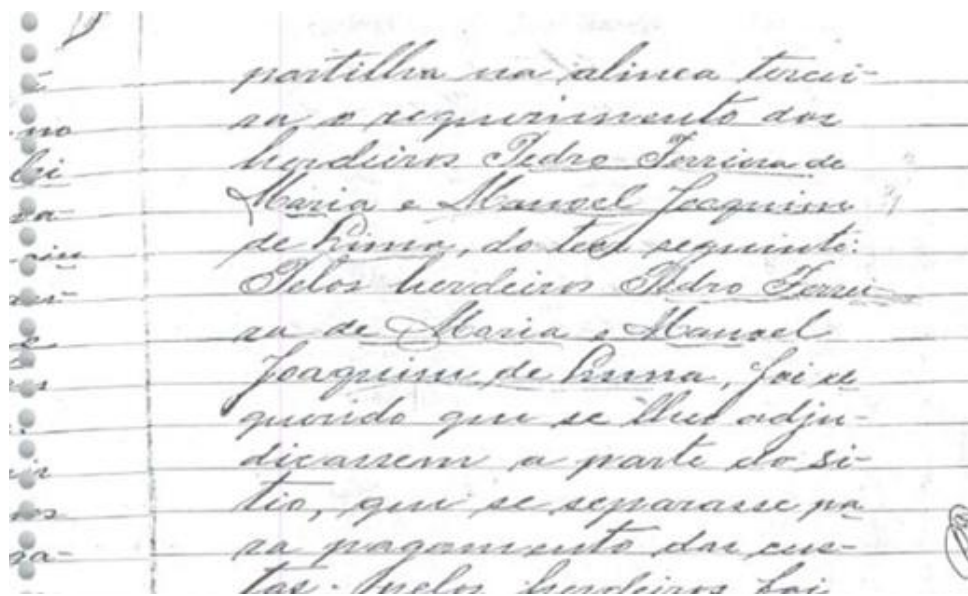 partilha na alinea tercei-
ra o requerimento dos
herdeiros Pedro Ferreira de
Maria e Manoel Joaquim
de Lima, do teor seguinte:
Pelos herdeiros Pedro Ferrei-
ra de Maria e Manoel
Joaquim de Lima, foi re
querido que se lhes adju-
dicassem a parte do si-
tio, que se separasse pa
ra pagamento das cus-
tas. Pelos herdeiros foi